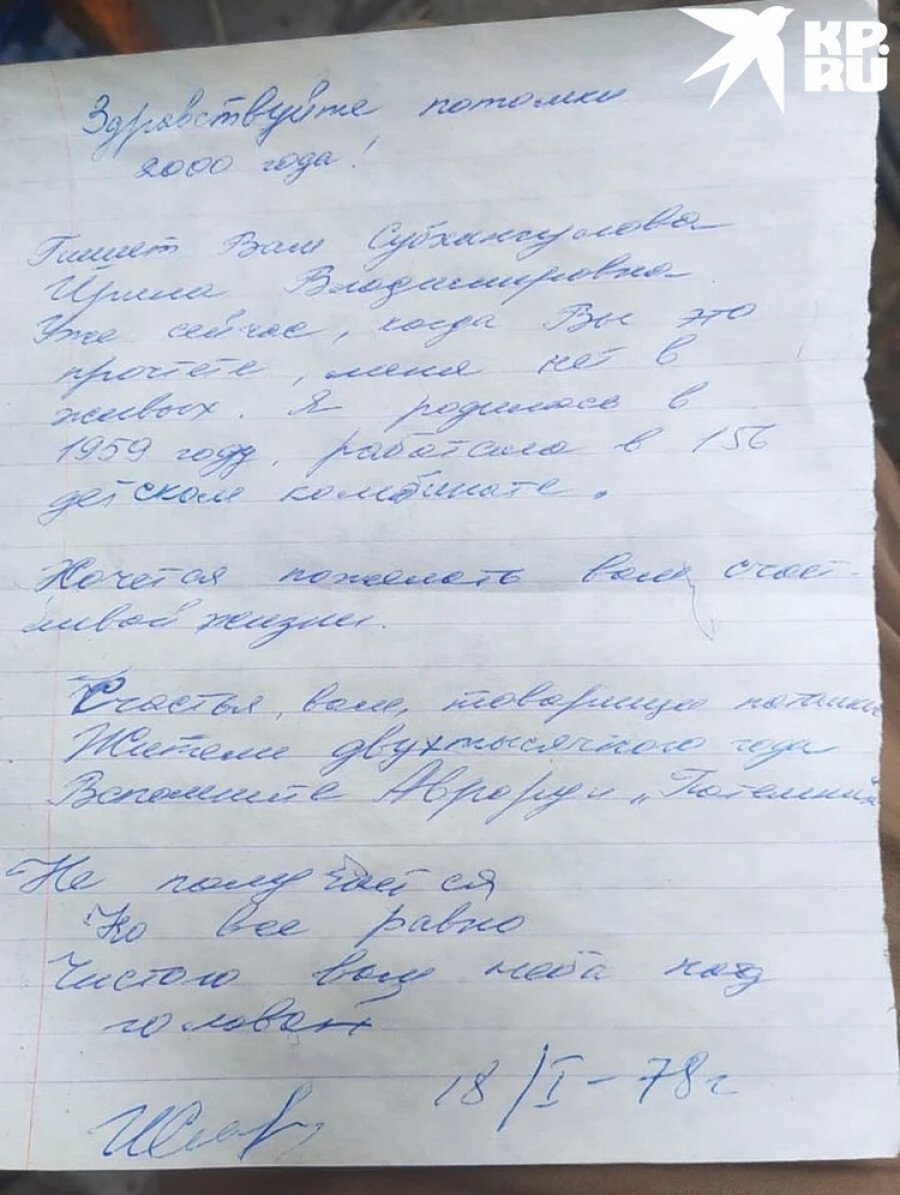 KP.
RU
Здравствуйте потомки
2000 года!
Пишет Вам Субхангулова
Ирина Владимировна
Уже сейчас, когда Вы это
прочтете, меня нет в
живых. Я родилась в
1959 году, работала в 156
детском комбинате.
Хочется пожелать вам счаст-
ливой жизни.
Счастья, вам, товарищи потомки
Жители двухтысячного года
Вспомните Аврору и „Потемкин
Не получается
Но все равно
Чистого вам неба над
головой
18/I-78г